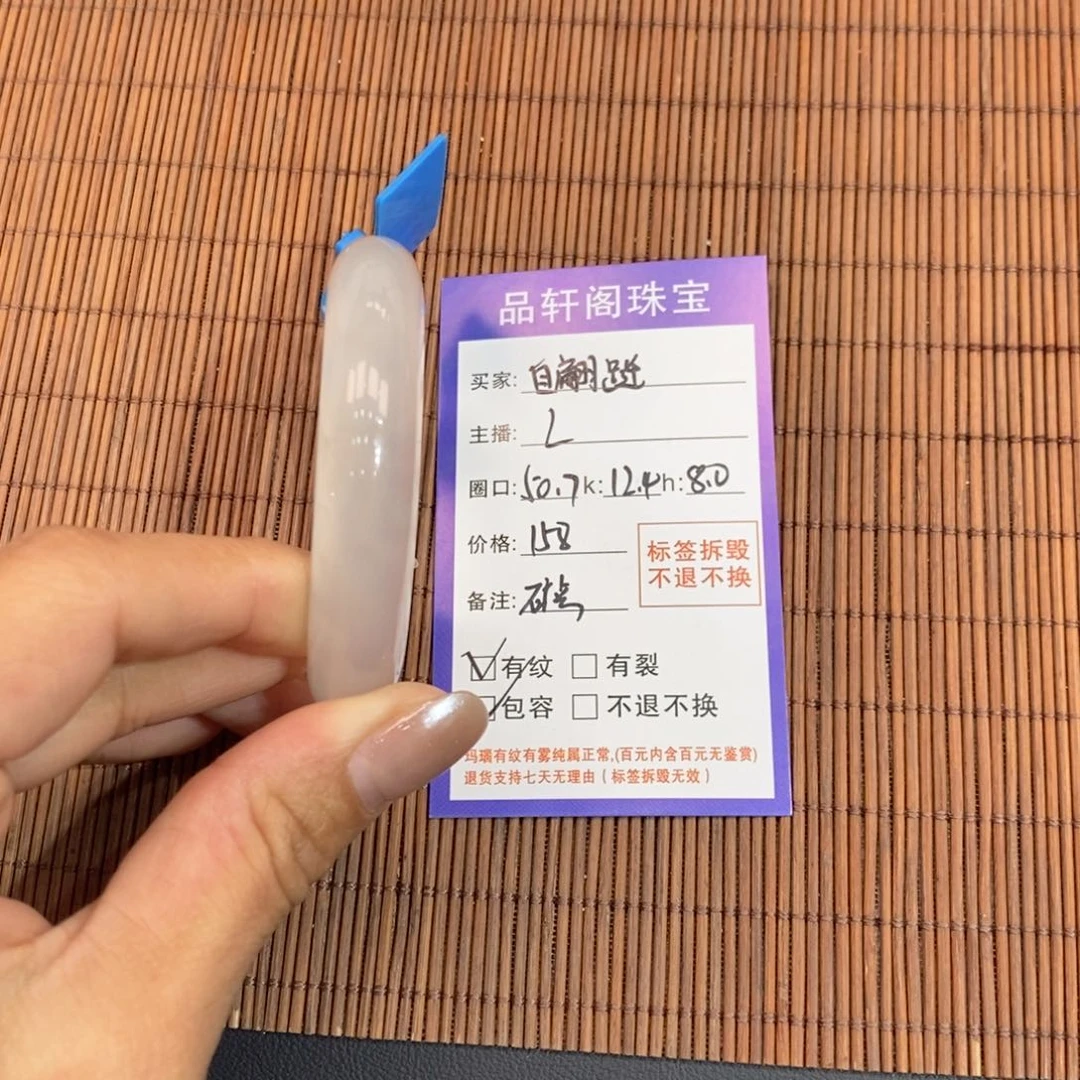 品轩阁珠宝
买家:
主播: L
圈口:50.7k:12.4h:8.0
价格:158
标签拆毁
不退不换
备注:
有纹 有裂
包容 不退不换
玛瑙有纹有雾纯属正常,(百元内含百元无鉴赏)
退货支持七天无理由(标签拆毁无效)